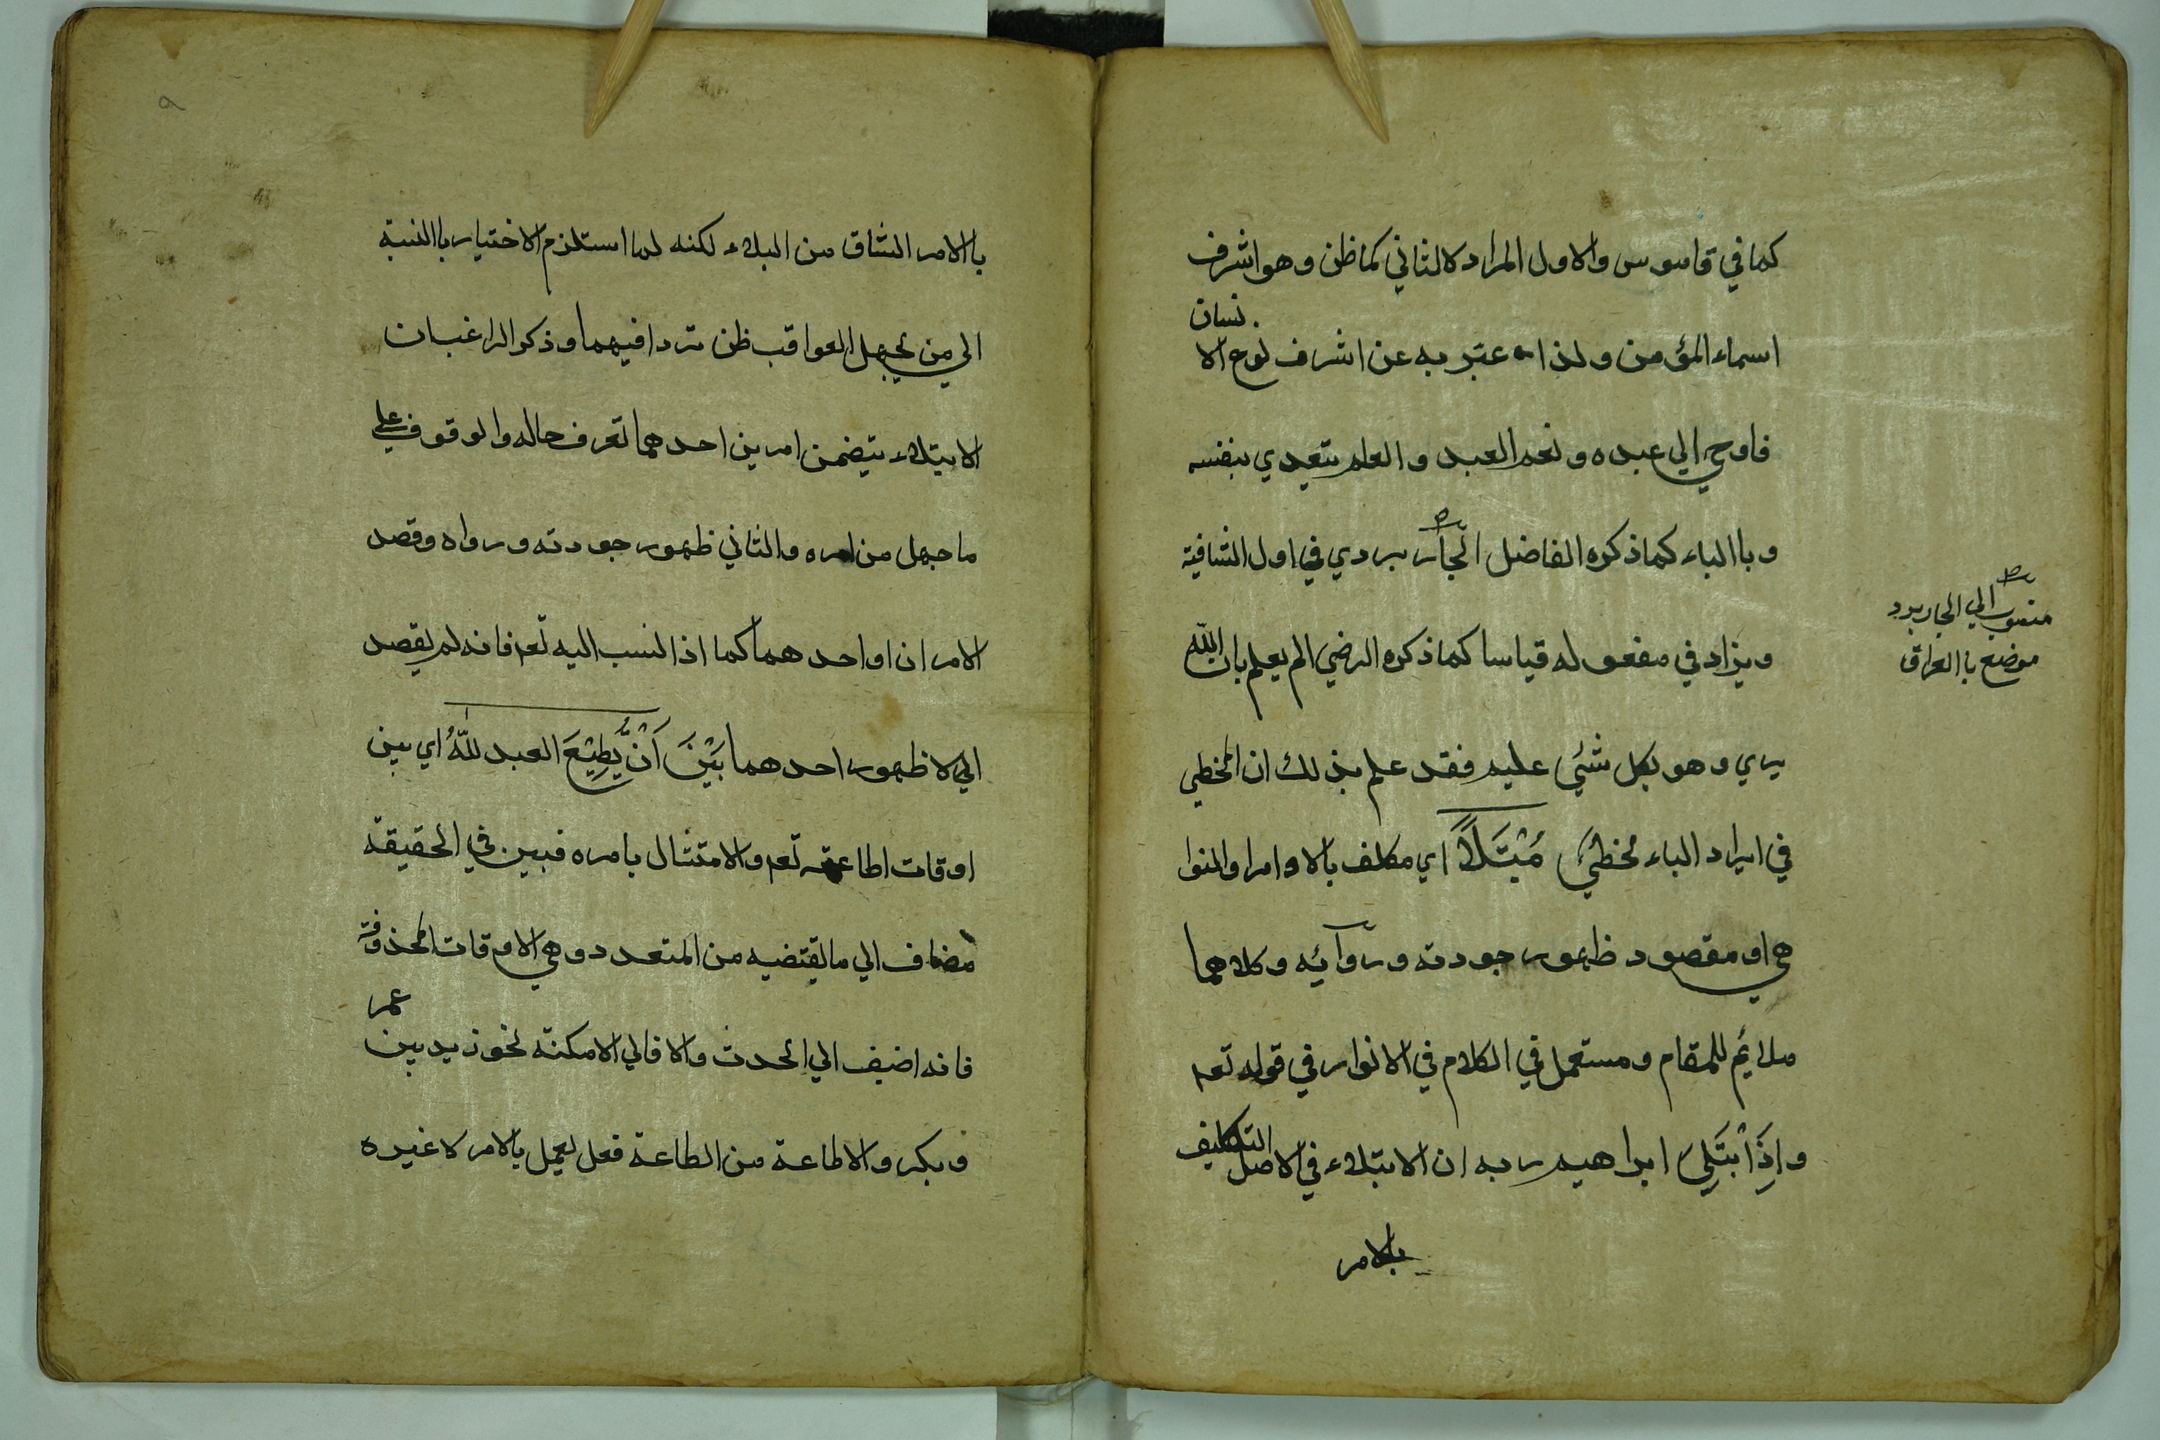 كما في قاموس والاول المراد لا الثاني كما ظن وهو اشرف
اسماء المؤمن ولذا عتبر به عن اشرف نوع الا
نسان
فاوحي الي عبده ونعم العبد والعلم يتعدي بنفسه
وبا الباء كما ذكره الفاضل الجار بردي في اول الشافية
منسوب الي الجاربرد
موضع با العراق
ويزاد في مفعوله قياسا كما ذكره الرضي الم يعلم بان الله
يري وهو بكل شئي عليم فقد علم بذلك ان المخطي
في ايراد الباء مخطئ مُبْتَلاً اي مكلف بالاوامر والنوا
هي او مقصود ظهور جودته وروآئه وكلاهما
ملائم للمقام ومستعمل في الكلام في الانوار في قوله تعم
واِذَا بْتَلِيَ ابراهيم ربه ان الابتلاء في الاصل التكليف
بالامر
٩
با الامر الشاق من البلاء لكنه لما استلزم الاختيار با النسبة
الي من يجهل العواقب ظن تردافيهما وذكر الراغب ان
الابتلاء يتضمن امرين احدهما تعرف حاله والوقوف علي
ما جهل من امره والثاني ظهور جودته ورواه وقصد
الامر ان او احد هما كما اذا نسب اليه تعم فانه لم يقصد
الي لا ظهور احدهما بَيْنَ اَنْ يُّطِيْعَ العبد للّٰهُ اي بين
اوقات اطاعته تعم والامتثال بامره فبين في الحقيقة
مضاف الي ما يقتضيه من المتعدد وهي الاوقات المحذوفة
فانه اضيف الي الحدث والا فالي الامكنة نحو زيد بين
عمر
و بكر والاطاعة من الطاعة فعل يعمل بالامر لا غيره